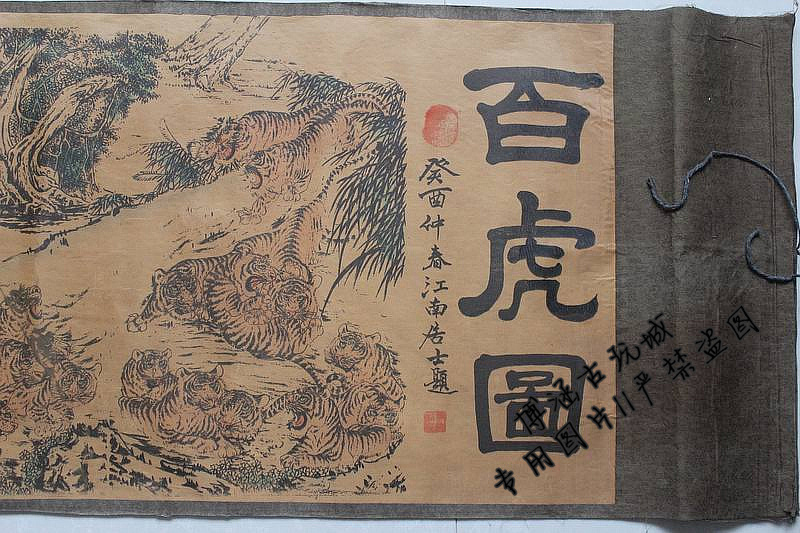 百虎圖
癸酉仲春江南居士題
博涵古玩城
专用图片严禁盗图